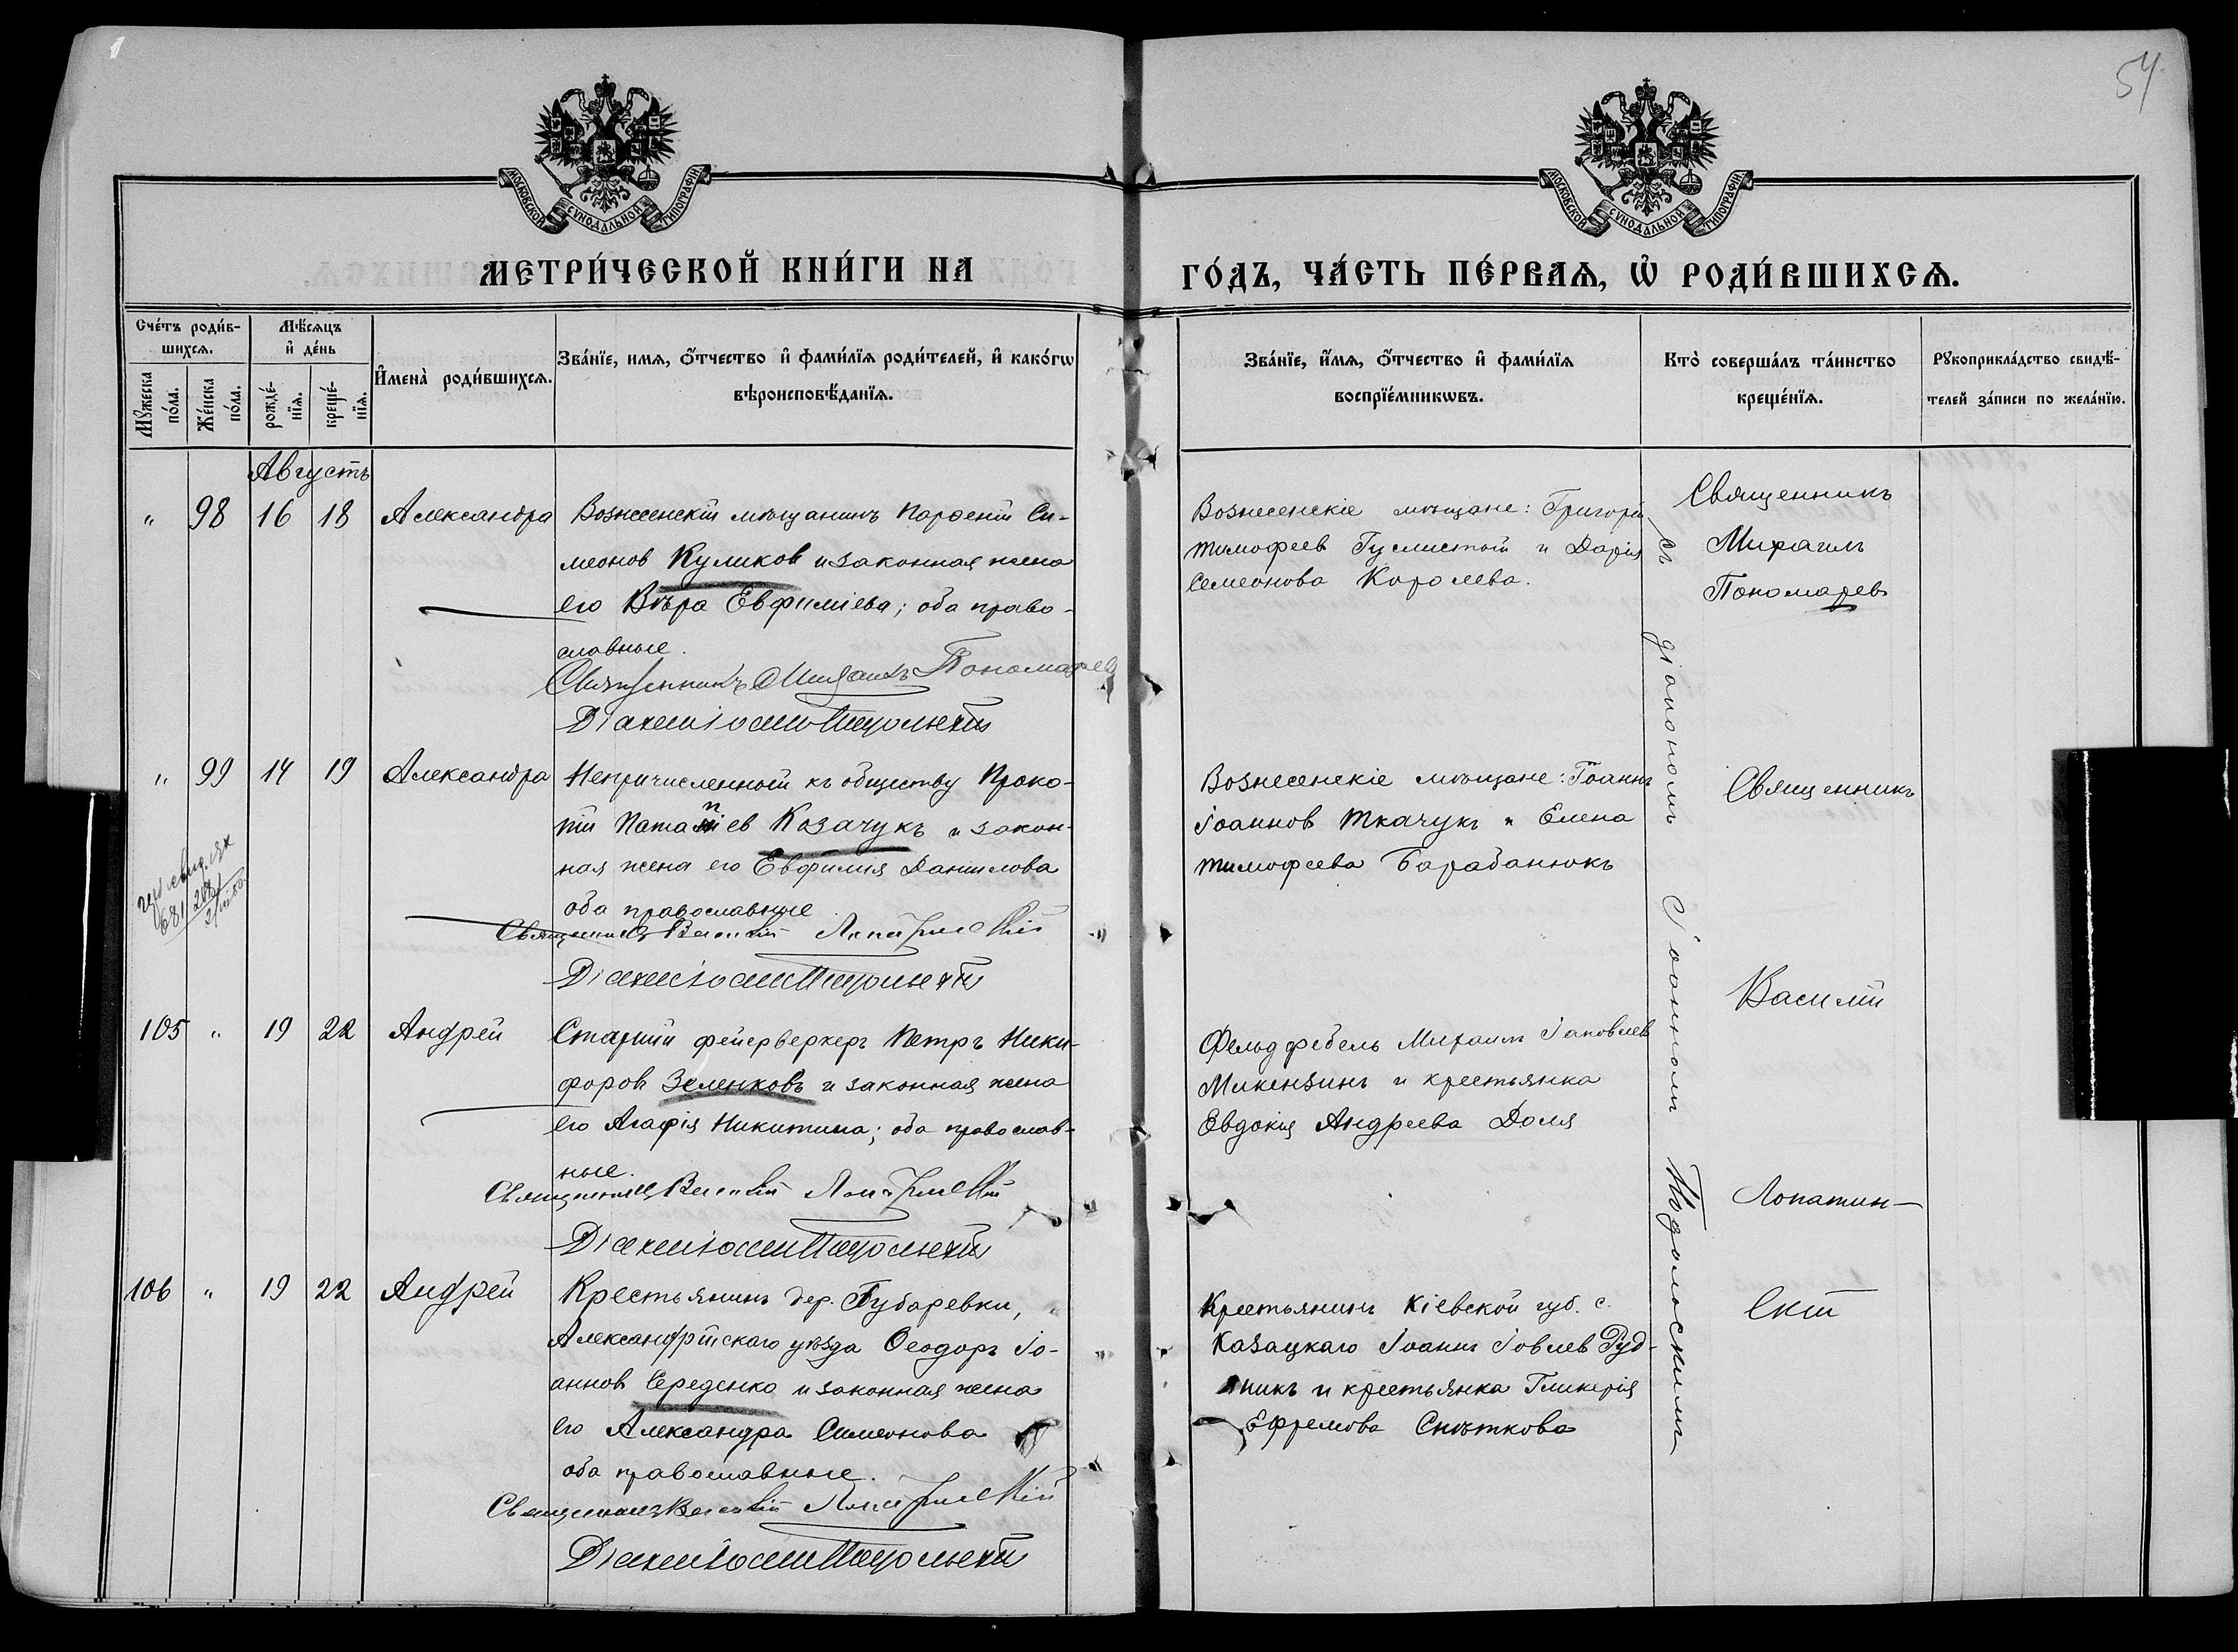 54
МОСКОВСКОЙ СѴНОДАЛЬНОЙ ТИПОГРАФІИ
МОСКОВСКОЙ СѴНОДАЛЬНОЙ ТИПОГРАФІИ
МЕТРИ́ЧЕСКОЙ КНИ́ГИ НА
ГО́ДЪ, ЧА́СТЬ ПЕ́РВАѦ, Ѡ҆ РОДИ́ВШИХСѦ.
Сче́тъ роди́в-
шихсѧ.
Мѣ́сѧцъ
и҆ де́нь
Мꙋ́жеска
по́ла.
Же́нска
по́ла.
рожде́-
нїѧ.
креще́-
нїѧ.
И҆мена̀ роди́вшихсѧ.
Зва́нїе, имѧ, ѻ҆́тчество и҆ фами́лїѧ роди́телей, и҆ како́гѡ
вѣроисповѣ́данїѧ.
Зва́нїе, и҆́мѧ, ѻ҆́тчество и҆ фами́лїѧ
воспрїе́мникѡвъ.
Кто̀ соверша́лъ та́инство
креще́нїѧ.
Рꙋкоприкла́дство свидѣ́-
телей за́писи по жела́нїю.
Августъ
" 98 16 18 Александра
Вознесенскій мѣщанинъ Парѳеній Си-
меонов Куликов и законная жена
его Вѣра Евфиміева; оба право-
славные.
Священникъ Михаилъ Пономарев
Вознесенскіе мѣщане: Григорій
Тимофеев Гуслистый и Дарія
Семеонова Королева.
Священникъ
Михаилъ
Пономарев
съ діакономъ Іоанномъ Подольскимъ
" 99 14 19 Александра
Непричисленный къ обществу Проко-
пій Патапіев Козачукъ и закон-
ная жена его Евфимія Даниилова
оба православные
Священникъ Василій Лопатинскій
Вознесенскіе мѣщане: Іоаннъ
Іоаннов Ткачукъ и Елена
Тимофеева Барабанюкъ
Священникъ
Василій
Лопатин-
скій
105 " 19 22 Андрей
Старшій фейерверкеръ Петръ Ники-
форов Зеленковъ и законная жена
его Агафія Никитина; оба православ-
ные.
Священникъ Василій Лопатинскій
Фельдфебель Михаилъ Іаковлев
Микензинъ и крестьянка
Евдокія Андреева Доля
106 " 19 22 Андрей
Крестьянинъ дер. Губаревки,
Александрійскаго уѣзда Ѳеодоръ Іо-
аннов Середенко и законная жена
его Александра Симеонова
оба православные.
Священникъ Василій Лопатинскій
Крестьянинъ Кіевской губ. с.
Казацкаго Іоаннъ Іовлев Руд-
никъ и крестьянка Гликерія
Ефремова Снѣткова